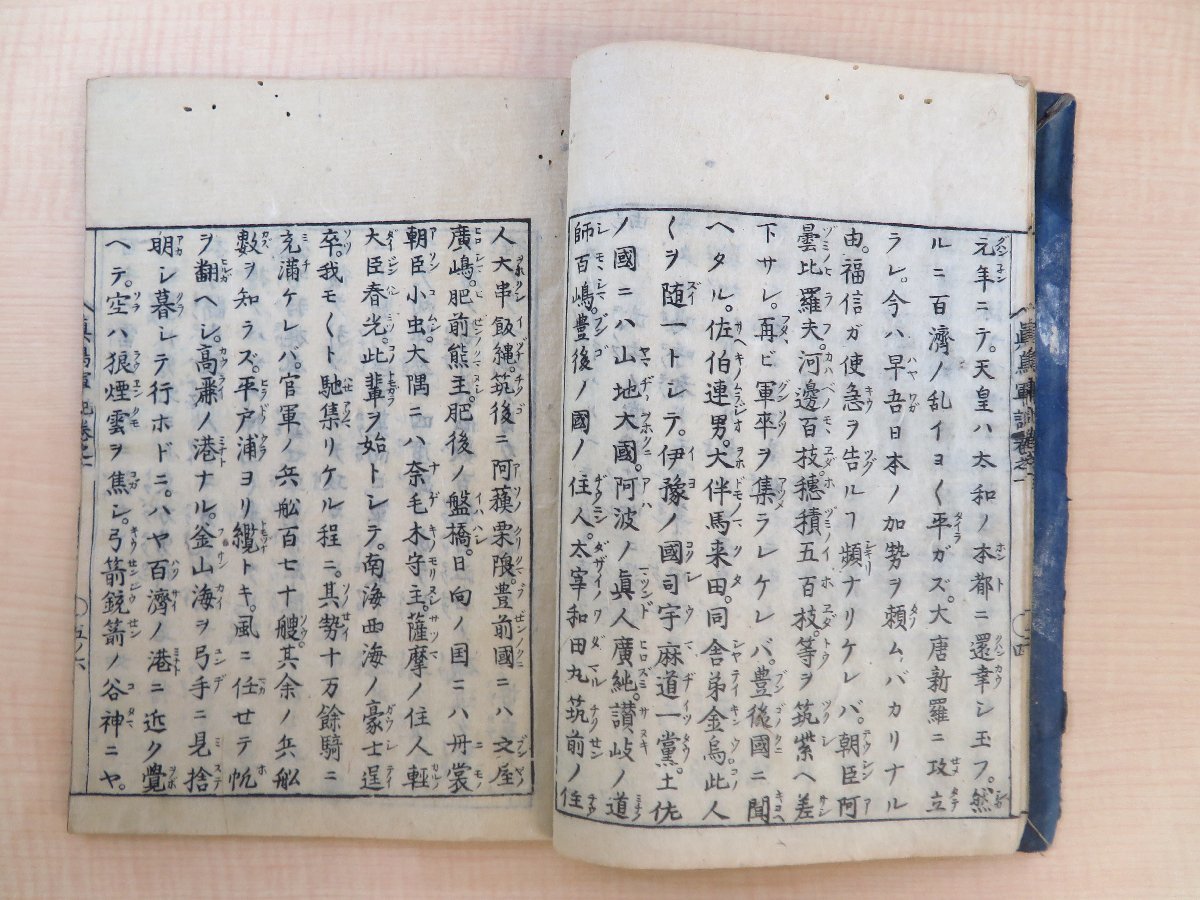 元年ニテ。天皇ハ太和ノ本都ニ還幸シ玉フ。然
ルニ百濟ノ乱イヨ〱平ガズ。大唐新羅ニ攻立
ラレ。今ハ早吾日本ノ加勢ヲ頼ム。バカリナル
由。福信ガ使急ヲ告ルフ頻ナリケレバ。朝臣阿
曇比羅夫。河邊百技。穗積五百技。等ヲ筑紫ヘ差
下サレ。再ビ軍卒ヲ集ラレケレバ。豊後國ニ聞
ヘタル。佐伯連男。大伴馬来田。同舎弟金烏此人
〱ヲ随一トシテ。伊豫ノ國司宇麻道一黨。土佐
ノ國ニハ山地大國。阿波ノ眞人廣純。讃岐ノ道
師百嶋。豊後ノ國ノ住人。太宰和田丸筑前ノ住
人大串飯縄。筑後ニ阿𦿸栗隈。豊前國ニハ文屋
廣嶋。肥前熊主。肥後ノ盤橋。日向ノ国ニハ丹裳
朝臣小虫。大隅ニハ奈毛木守主。薩摩ノ住人輕
大臣春光。此輩ヲ始トシテ。南海西海ノ豪士逞
卒。我モ〱ト馳集リケル程ニ。其勢十万餘騎ニ
充滿ケレバ。官軍ノ兵舩百七十艘。其余ノ兵舩
數ヲ知ラズ。平戸浦ヨリ纜トキ。風ニ任せテ帆
ヲ翻ヘシ。高麗ノ港ナル。釜山海ヲ弓手ニ見捨
明シ暮シテ行ホドニ。ハヤ百濟ノ港ニ近ク覺
ヘテ。空ハ狼煙雲ヲ焦シ。弓箭銃箭ノ谷神ニヤ。